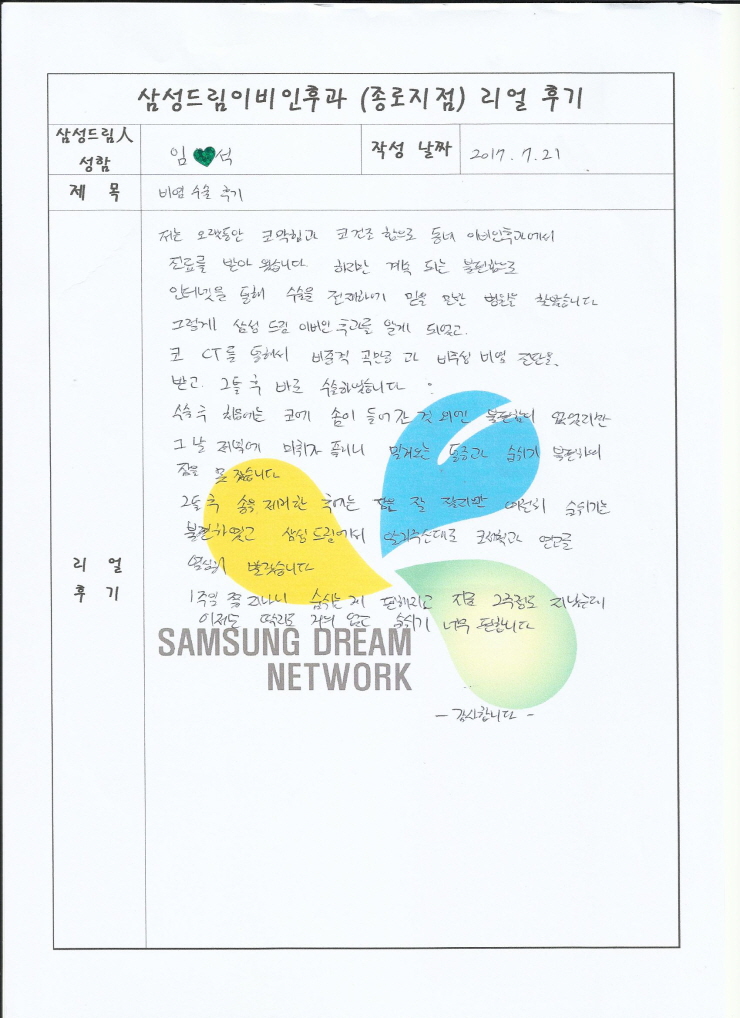 삼성드림이비인후과 (종로지점) 리얼 후기
삼성드림人 성함
임 석
작성 날짜
2017. 7. 21
제 목
비염 수술 후기
리 얼 후 기
저는 오랫동안 코막힘과 코건조 함으로 동네 이비인후과에서
진료를 받아 왔습니다. 하지만 계속 되는 불편함으로
인터넷을 통해 수술을 전제하기 믿을 만한 병원을 찾았습니다
그렇게 삼성 드림 이비인후과를 알게 되었고.
코 CT를 통해서 비중격 곡만증 과 비후성 비염 진단을.
받고. 그틀 후 바로 수술하였습니다.
수술 후 처음에는 코에 솜이 들어간 것 외엔 불편함이 없었지만
그 날 저녁에 마취가 풀리니 밀려오는 통증과 숨쉬기 불편하여
잠을 못 잤습니다
그틀 후 솜을 제거한 후에는 잠은 잘 잤지만 여전히 숨쉬기는
불편하였고 삼성드림에서 알려주신대로 코세척과 연고를
열심히 발랐습니다
1주일 쯤 지나니 숨쉬는 게 편해지고 지금 2주정도 지났는데
이제는 딱지도 거의 없고 숨쉬기 너무 편합니다
SAMSUNG DREAM
NETWORK
- 감사합니다 -